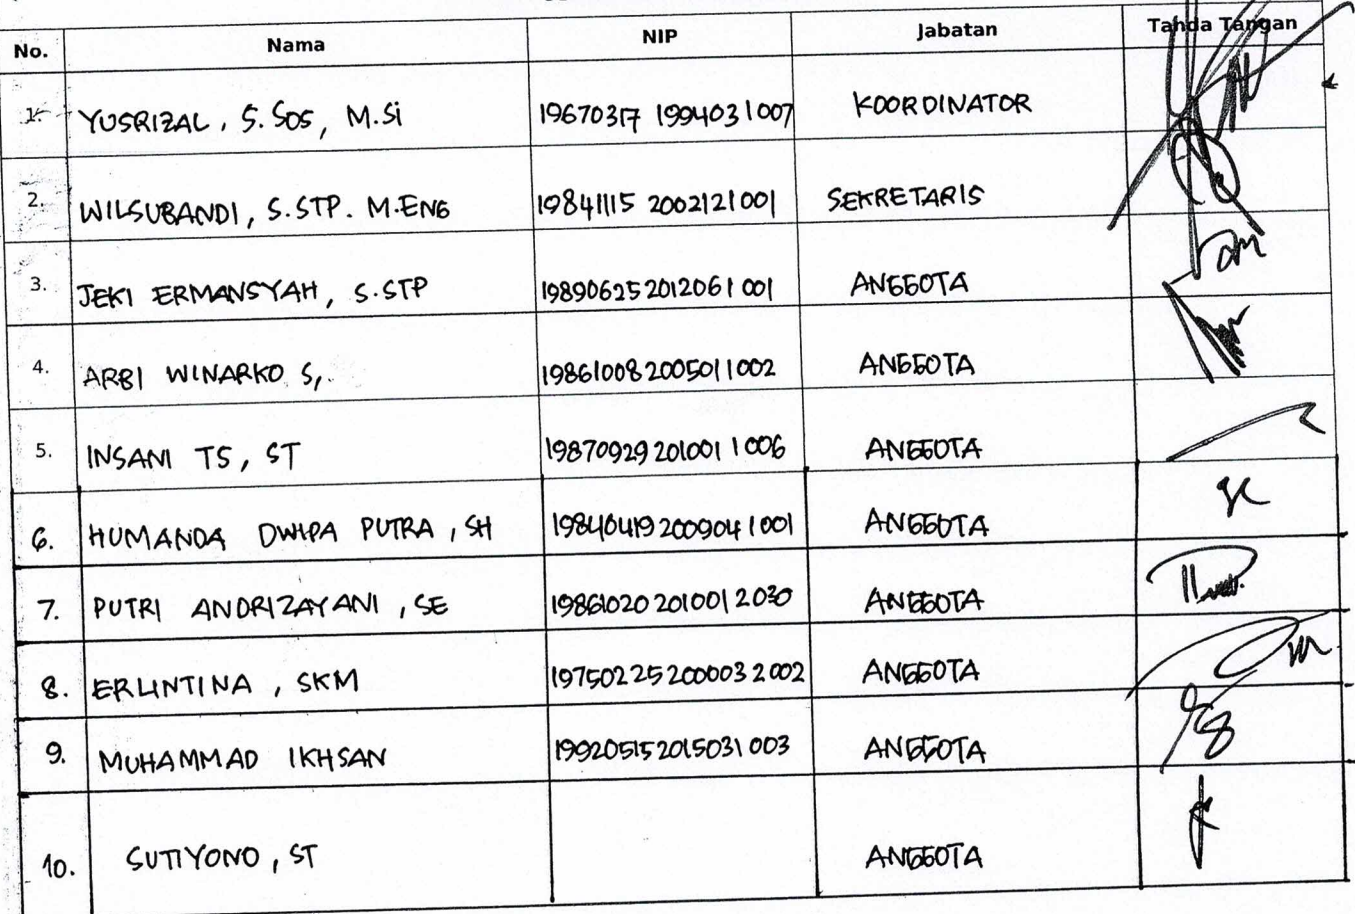 No. Nama NIP Jabatan Tanda Tangan
1. YUSRIZAL, S.SOS, M.Si 19670317 199403 1 007 KOORDINATOR
2. WILSUBANDI, S.STP. M.ENG 19841115 2002121001 SEKRETARIS
3. JEKI ERMANSYAH, S.STP 198906252012061 001 ANGGOTA
4. ARBI WINARKO S,. 198610082005011002 ANGGOTA
5. INSANI TS, ST 19870929201001 1 006 ANGGOTA
6. HUMANDA DWIPA PUTRA, SH 198404192009041001 ANGGOTA
7. PUTRI ANDRIZAYANI, SE 198610202010012030 ANGGOTA
8. ERLINTINA, SKM 197502252000032002 ANGGOTA
9. MUHAMMAD IKHSAN 199205152015031003 ANGGOTA
10. SUTIYONO, ST ANGGOTA